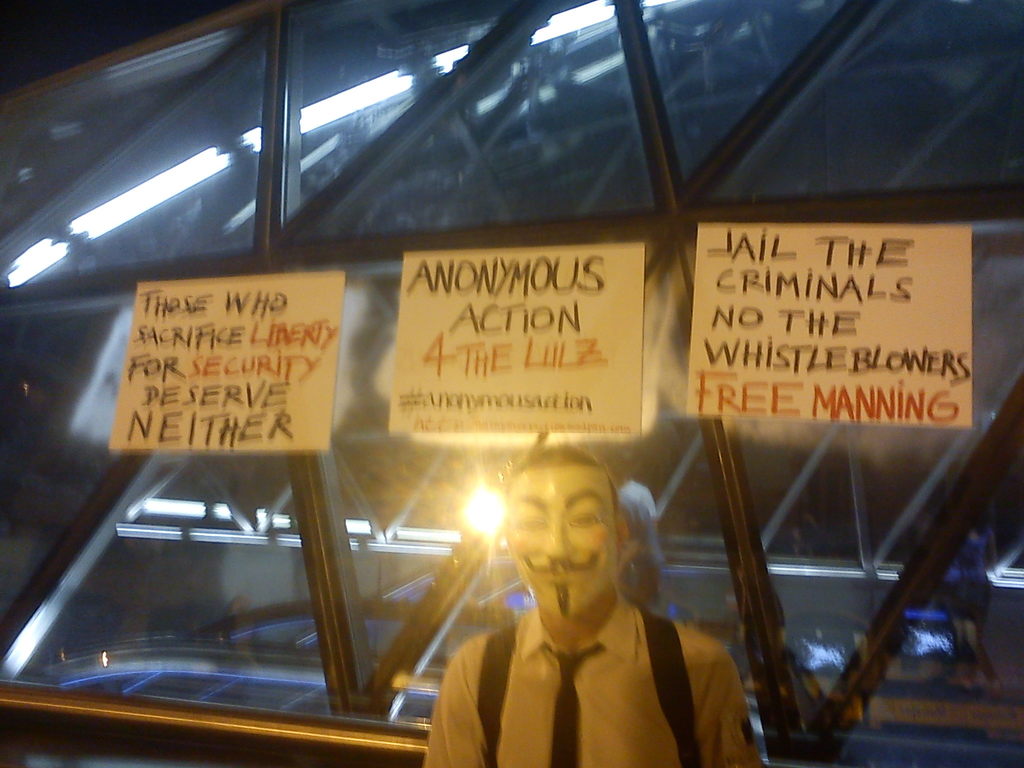 THOSE WHO
SACRIFICE LIBERTY
FOR SECURITY
DESERVE
NEITHER
ANONYMOUS
ACTION
4 THE LULZ
#anonymousaction
JAIL THE
CRIMINALS
NO THE
WHISTLEBLOWERS
FREE MANNING